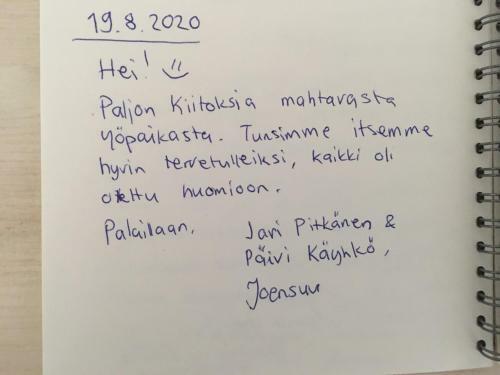 19.8.2020
Hei! :)
Paljon Kiitoksia mahtavasta
yöpaikasta. Tunsimme itsemme
hyvin tervetulleiksi, kaikki oli
otettu huomioon.
Palaillaan,
Jari Pitkänen &
Päivi Käyhkö,
Joensuu